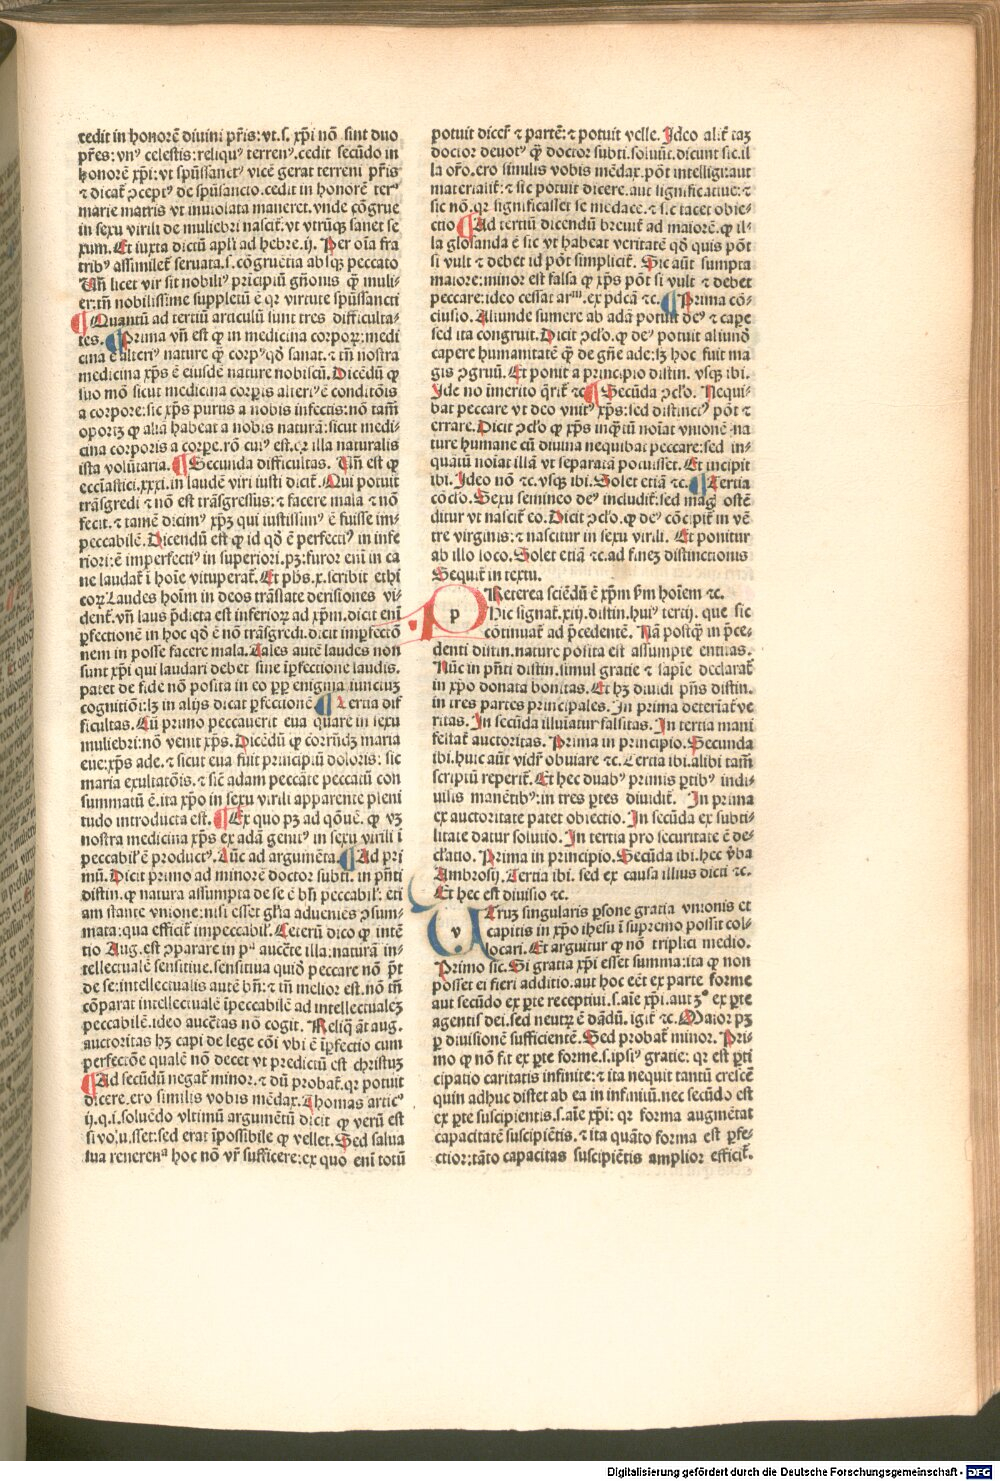 cedit in honorē diuini pr̄is: vt. s. xp̄i nō sint duo
pr̄es: vnꝰ celestis: reliquꝰ terrenꝰ. cedit secūdo in
honorē xp̄i: vt sp̄ūssanctꝰ vicē gerat terreni pr̄is
⁊ dicat̃ ꝯceptꝰ de sp̄ūsancto. cedit in honorē
marie matris vt inuiolata maneret. vnde cōgrue
in sexu virili de muliebri nascit̃. vt vtrūqꝫ sanet se
xum. Et iuxta dictū apl̄i ad hebre. ij. Per oīa fra
tribꝰ assimilet̃ seruata. s. cōgruētia absqꝫ peccato
Un̄ licet vir sit nobiliꝰ pricipiū gn̄onis ꝙ̄ muli-
er: tn̄ nobilissime suppletū ē qꝛ virtute sp̄ūssancti
¶ Quantū ad tertiū articulū sunt tres difficulta-
tes. ¶ Prima vn̄ est ꝙ in medicina corpoꝝ: medi
cina ē alteriꝰ nature ꝙ̄ corpꝰ qd̄ sanat. ⁊ tn̄ nostra
medicina xp̄s ē eiusdē nature nobiscū. Dicēdū ꝙ
suo mō sicut medicina corp̄is alteriꝰ ē conditōis
a corpore: sic xp̄s purus a nobis infectis: nō tam̄
oportꝫ ꝙ aliā habeat a nobis naturā: sicut medi-
cina corporis a corꝑe. rō cuiꝰ est. qꝛ illa naturalis
ista volūtaria. ¶ Secunda difficultas. Un̄ est ꝙ
eccl̄astici. xxxi. in laudē viri iusti dicit̃. Qui potuit
trāsgredi ⁊ nō est trāsgressus: ⁊ facere mala ⁊ nō
fecit. ⁊ tamē dicimꝰ xp̄ꝫ qui iustissimꝰ ē fuisse im-
peccabilē. Dicendū est ꝙ id qd̄ ē perfectiꝰ in infe
riori: ē imperfectiꝰ in superiori. pꝫ: furor eni in ca
ne laudat̃ ī hoīe vituperat̃. Et ph̄s. x. scribit ethi
coꝝ Laudes hoīm in deos trāslate derisiones vi-
dent̃. vn̄ laus p̄dicta est inferioꝝ ad xp̄m. dicit eni
ꝑfectionē in hoc qd̄ ē nō trāsgredi. dicit imꝑfectō
nem in posse facere mala. Tales autē laudes non
sunt xp̄i qui laudari debet sine īꝑfectione laudis.
patet de fide nō posita in eo ꝓpꝑ enigma iunctuꝫ
cognitiōi: lꝫ in alijs dicat ꝑfectionē ¶ Tertia dif
ficultas. Cū primo peccauerit eua quare in sexu
muliebri: nō venit xp̄s. Dicēdū ꝙ corrūdꝫ maria
eue: xp̄s ade. ⁊ sicut eua fuit principiū doloris: sic
maria exultatōis. ⁊ sic̄ adam peccāte peccatū con
summatū ē. ita xp̄o in sexu virili apparente pleni
tudo introducta est. ¶ Ex quo pꝫ ad qōnē. ꝙ vꝫ
nostra medicina xp̄s ex adā genitꝰ in sexu virili ī
peccabil̄ ē productꝰ. Nūc ad argumēta. ¶ Ad pri
mū. Dicit primo ad minorē doctor subti. in pn̄ti
distin. ꝙ natura assumpta de se ē bn̄ peccabil̄: eti
am stante vnione: nisi esset gl̄ia adueniēs ꝯsum-
mata: qua efficit̃ impeccabil̄. Ceterū dico ꝙ intē
tio Aug. est ꝯparare in pᵃ auctte illa: naturā in-
tellectualē sensitiue. sensitiua quid̄ peccare nō p̄t
de se: intellectualis autē bn̄: ⁊ tn̄ melior est. nō tn̄
cōparat intellectualē īpeccabilē ad intellectualeꝫ
peccabilē. ideo auctt̃as nō cogit. Reliq̄ āt aug.
auctoritas hꝫ capi de lege cōi vbi ē īꝑfectio cum
perfectōe qualē nō decet vt predictū est christuꝫ
¶ Ad secūdū negat̃ minor. ⁊ dū probat̃. qꝛ potuit
dicere. ero similis vobis mēdax. Thomas articꝰ
ij. q. i. soluēdo vltimū argumētū dicit ꝙ verū est
si voluisset: sed erat īpossibile ꝙ vellet. Sed salua
sua reuerenᵃ hoc nō vr̄ sufficere: ex quo eni totū
potuit dicer̃ ⁊ partē: ⁊ potuit velle. Ideo alit̃ taꝫ
doctor deuotꝰ ꝙ̄ doctor subti. soluūt. dicunt sic. il
la or̄o. ero similis vobis mēdax. pōt intelligi: aut
materialit̃: ⁊ sic potuit dicere. aut significatiue: ⁊
sic nō. qꝛ significasset se mēdacē. ⁊ sic tacet obie-
ctio ¶ Ad tertiū dicendū breuit̃ ad maiorē. ꝙ il-
la glosanda ē sic vt habeat veritatē qd̄ quis pōt
si vult ⁊ debet id pōt simplicit̃. Sic aūt sumpta
maiore: minor est falsa ꝙ xp̄s pōt si vult ⁊ debet
peccare: ideo cessat arᵐ. ex pdcā ⁊c. ¶ Prima cō-
clusio. Aliunde sumere ab adā potuit deꝰ ⁊ caꝑe
sed ita congruit. Dicit ꝯclo. ꝙ deꝰ potuit aliunō
capere humanitatē ꝙ̄ de gn̄e ade: lꝫ hoc fuit ma
gis ꝯgruū. Et ponit a principio distin. vsqꝫ ibi.
Ide no imerito q̄rit̃ ⁊c. ¶ Secūda ꝯclo. Nequi-
bat peccare vt deo vnitꝰ xp̄s: sed distinctꝰ pōt ⁊
errare. Dicit ꝯclo ꝙ xp̄s inq̄tū noīat vnionē na
ture humane cū diuina nequibat peccare: sed in-
quātū noīat illā vt separatā potuisset. Et incipit
ibi. Ideo nō ⁊c. vsqꝫ ibi. Solet etiā ⁊c. ¶ Tertia
cōclo. Sexu femineo deꝰ includit̃: sed mag̃ ostē
ditur vt nascit̃ eo. Dicit ꝯclo. ꝙ deꝰ cōcipit̃ in vē
tre virginis: ⁊ nascitur in sexu virili. Et ponitur
ab illo loco. Solet etiā ⁊c. ad fineꝫ distinctionis
Sequit̃ in textu.
PReterea sciēdū ē xp̄m scd̄m hoīem ⁊c.
Hic signat̃. xiij. distin. huiꝰ tertij. que sic
cōtinuat̃ ad p̄cedentē. Nā postꝙ̄ in p̄ce-
denti distin. nature posita est assumpte entitas.
Nūc in pn̄ti distin. simul gratie ⁊ sapīe declarat̃
in xp̄o donata bonitas. Et hꝫ diuidi pn̄s distin.
in tres partes principales. In prima deteriat̃ ve
ritas. In secūda illuīatur falsitas. In tertia mani
festat̃ auctoritas. Prima in principio. Secunda
ibi. huic aūt vidr̃ obuiare ⁊c. Tertia ibi. alibi tam̄
scriptū reperit̃. Et hec duabꝰ primis ꝑtibꝰ indi-
uisis manētibꝰ: in tres ꝑtes diuidit̃. In prima
ex auctoritate patet obiectio. In secūda ex subti-
litate datur solutio. In tertia pro securitate ē de-
cl̄atio. Prima in principio. Secūda ibi. hec v̄ba
Ambrosij. Tertia ibi. sed ex causa illius dicti ⁊c.
Et hec est diuisio ⁊c.
UTruꝫ singularis ꝑsone gratia vnionis et
capitis in xp̄o ihesu ī supremo possit col-
locari. Et arguitur ꝙ nō triplici medio.
Primo sic. Si gratia xp̄i esset summa: ita ꝙ non
posset ei fieri additio. aut hoc eēt ex parte forme
aut secūdo ex ꝑte receptiui. s. aīe xp̄i. aut ꝫᵒ ex ꝑte
agentis dei. sed neutꝝ ē dādū. igit̃ ⁊c. Maior pꝫ
ꝑ diuisionē sufficientē. Sed probat̃ minor. Pri-
mo ꝙ nō fit ex ꝑte forme. s. ipsiꝰ gratie: qꝛ est ꝑti
cipatio caritatis infinite: ⁊ ita nequit tantū crescē
quin adhuc distet ab ea in infinitū. nec secūdo est
ex ꝑte suscipientis. s. aīe xp̄i: qꝛ forma augmētat
capacitatē suscipiētis. ⁊ ita quāto forma est ꝑfe-
ctior: tāto capacitas suscipiētis amplior efficit̃.
Digitalisierung gefördert durch die Deutsche Forschungsgemeinschaft - DFG